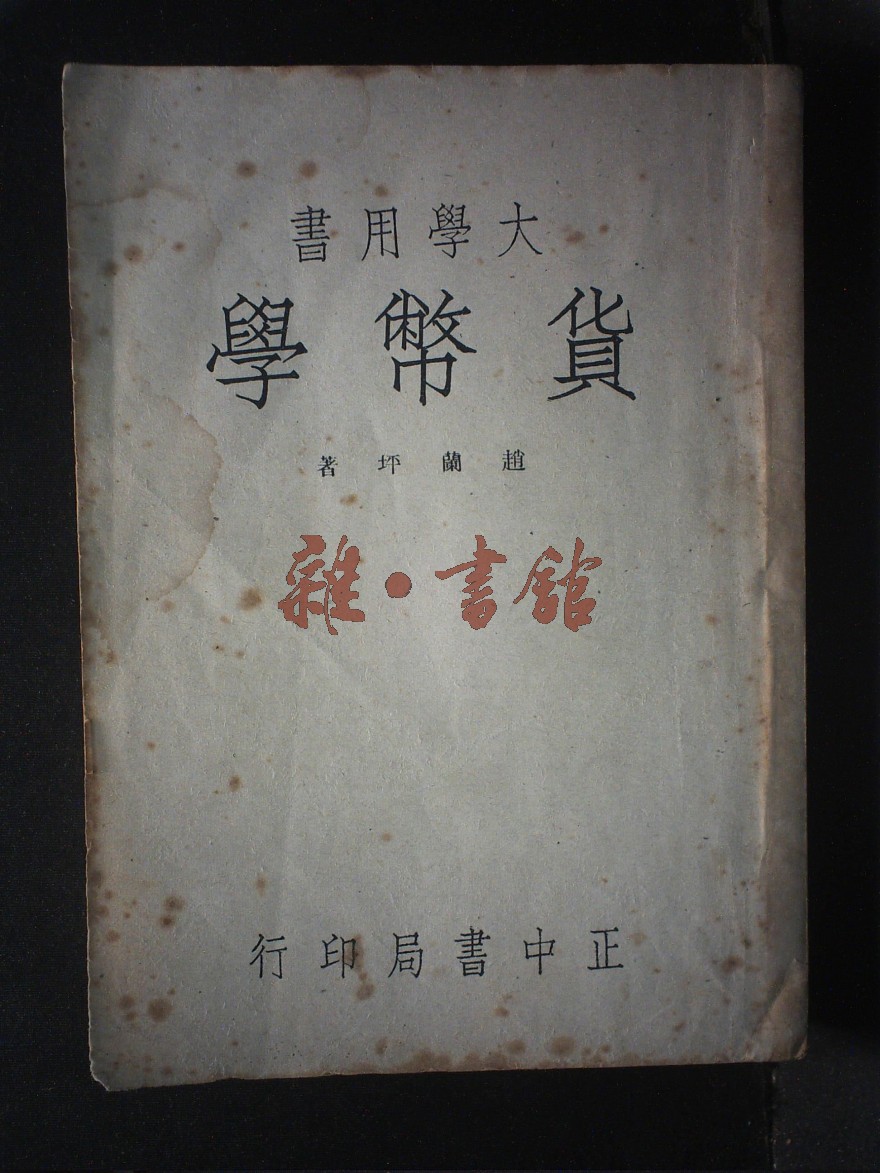 大學用書
貨幣學
趙蘭坪著
雜·書館
正中書局印行